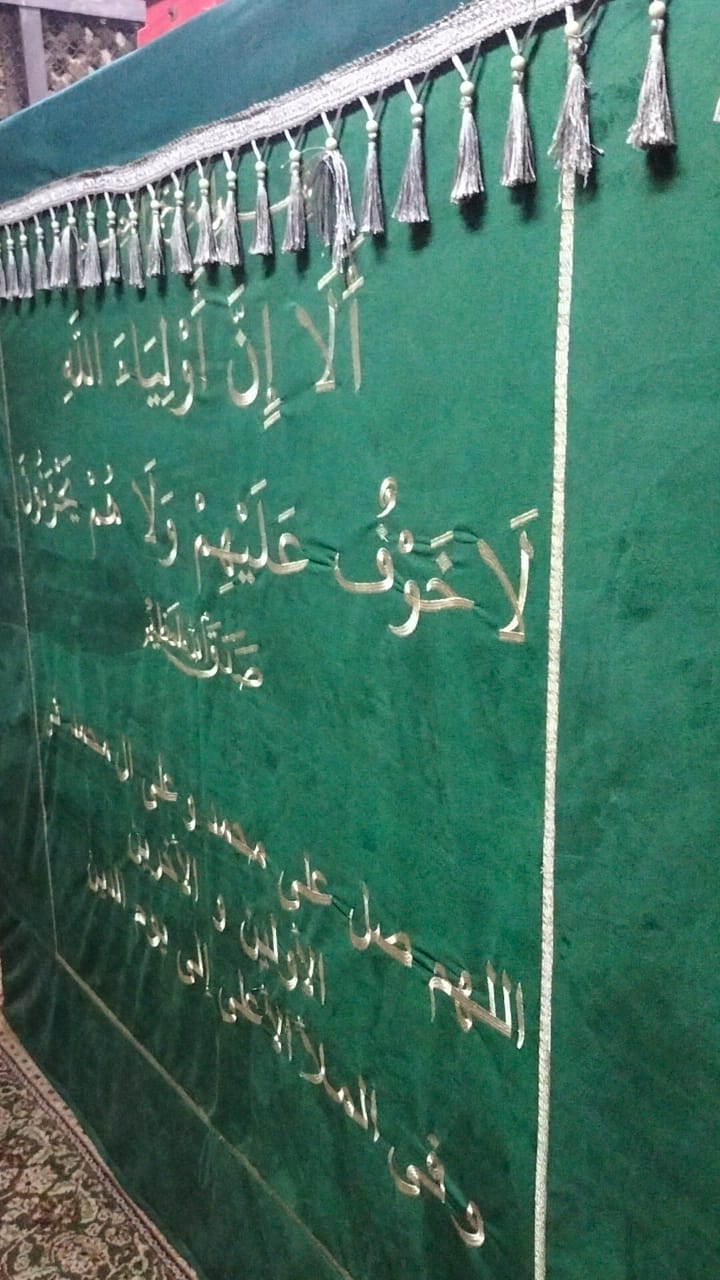 أَلَا إِنَّ أَوْلِيَاءَ اللهِ
لَا خَوْفٌ عَلَيْهِمْ وَلَا هُمْ يَحْزَنُونَ
صَدَقَ اللهُ العَظِيمُ
اللهم صل على محمد و على ال محمد فى
الأولين و الآخرين
و فى الملأ الأعلى إلى يوم الدين